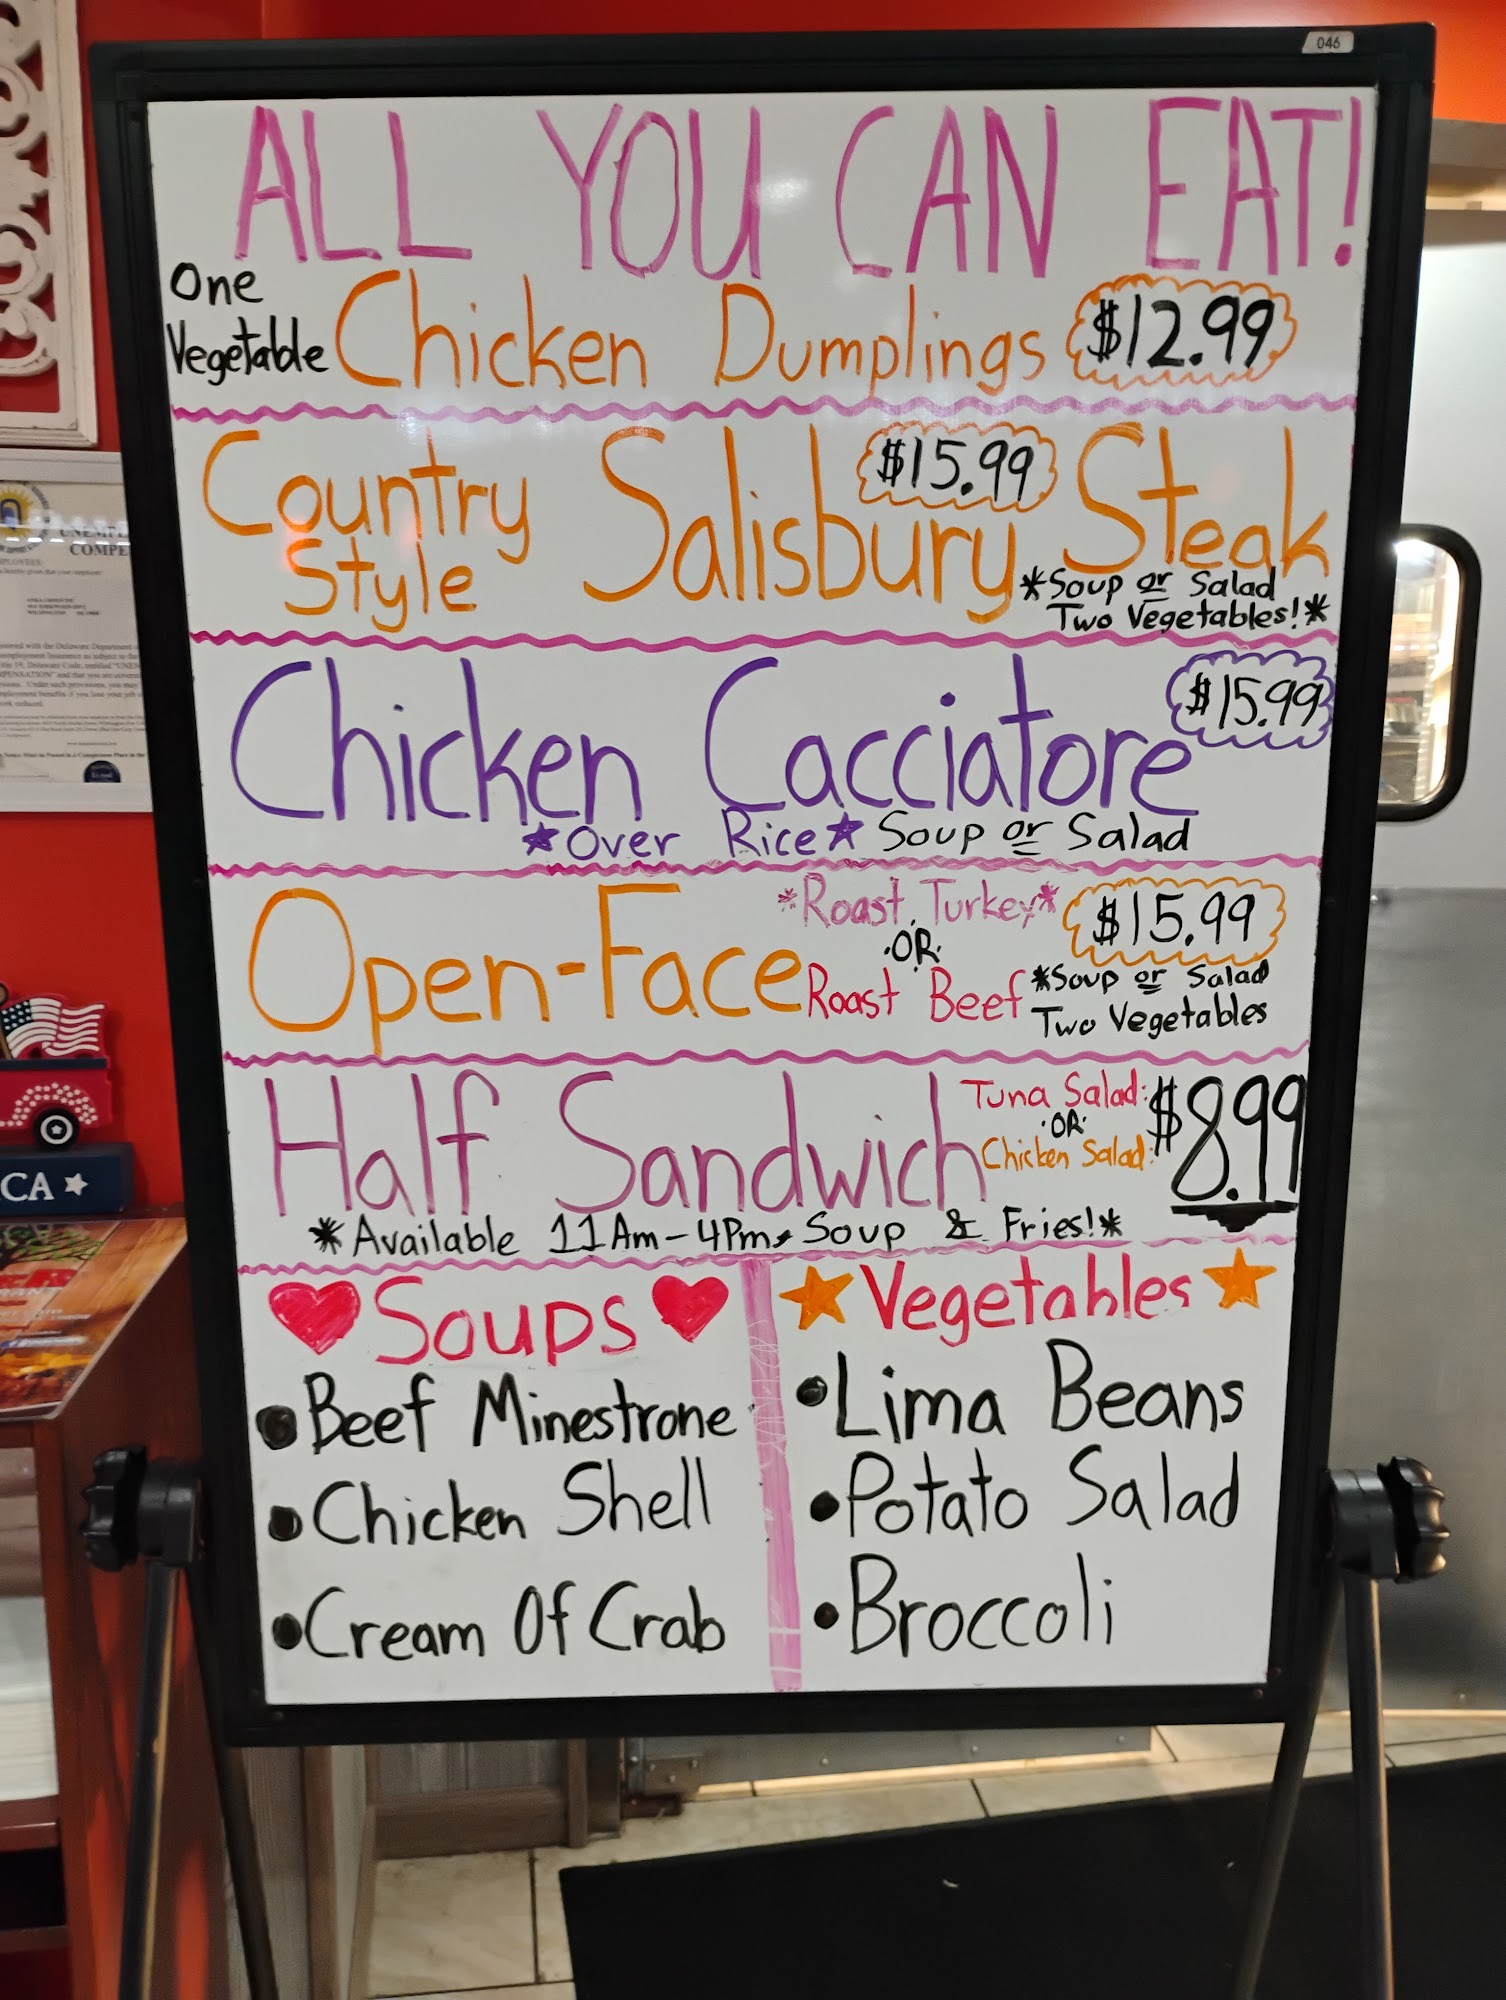 046
ALL YOU CAN EAT!
One
Vegetable
Chicken Dumplings $12.99
Country
Style
Salisbury Steak
$15.99
*Soup or Salad
Two Vegetables!*
Chicken Cacciatore
$15.99
*Over Rice* Soup or Salad
Open-Face
*Roast Turkey*
·OR·
Roast Beef
$15.99
*Soup or Salad
Two Vegetables
Half Sandwich
Tuna Salad:
·OR·
Chicken Salad:
$8.99
*Available 11Am-4Pm* Soup & Fries!*
Soups
•Beef Minestrone
•Chicken Shell
•Cream Of Crab
Vegetables
•Lima Beans
•Potato Salad
•Broccoli
CA